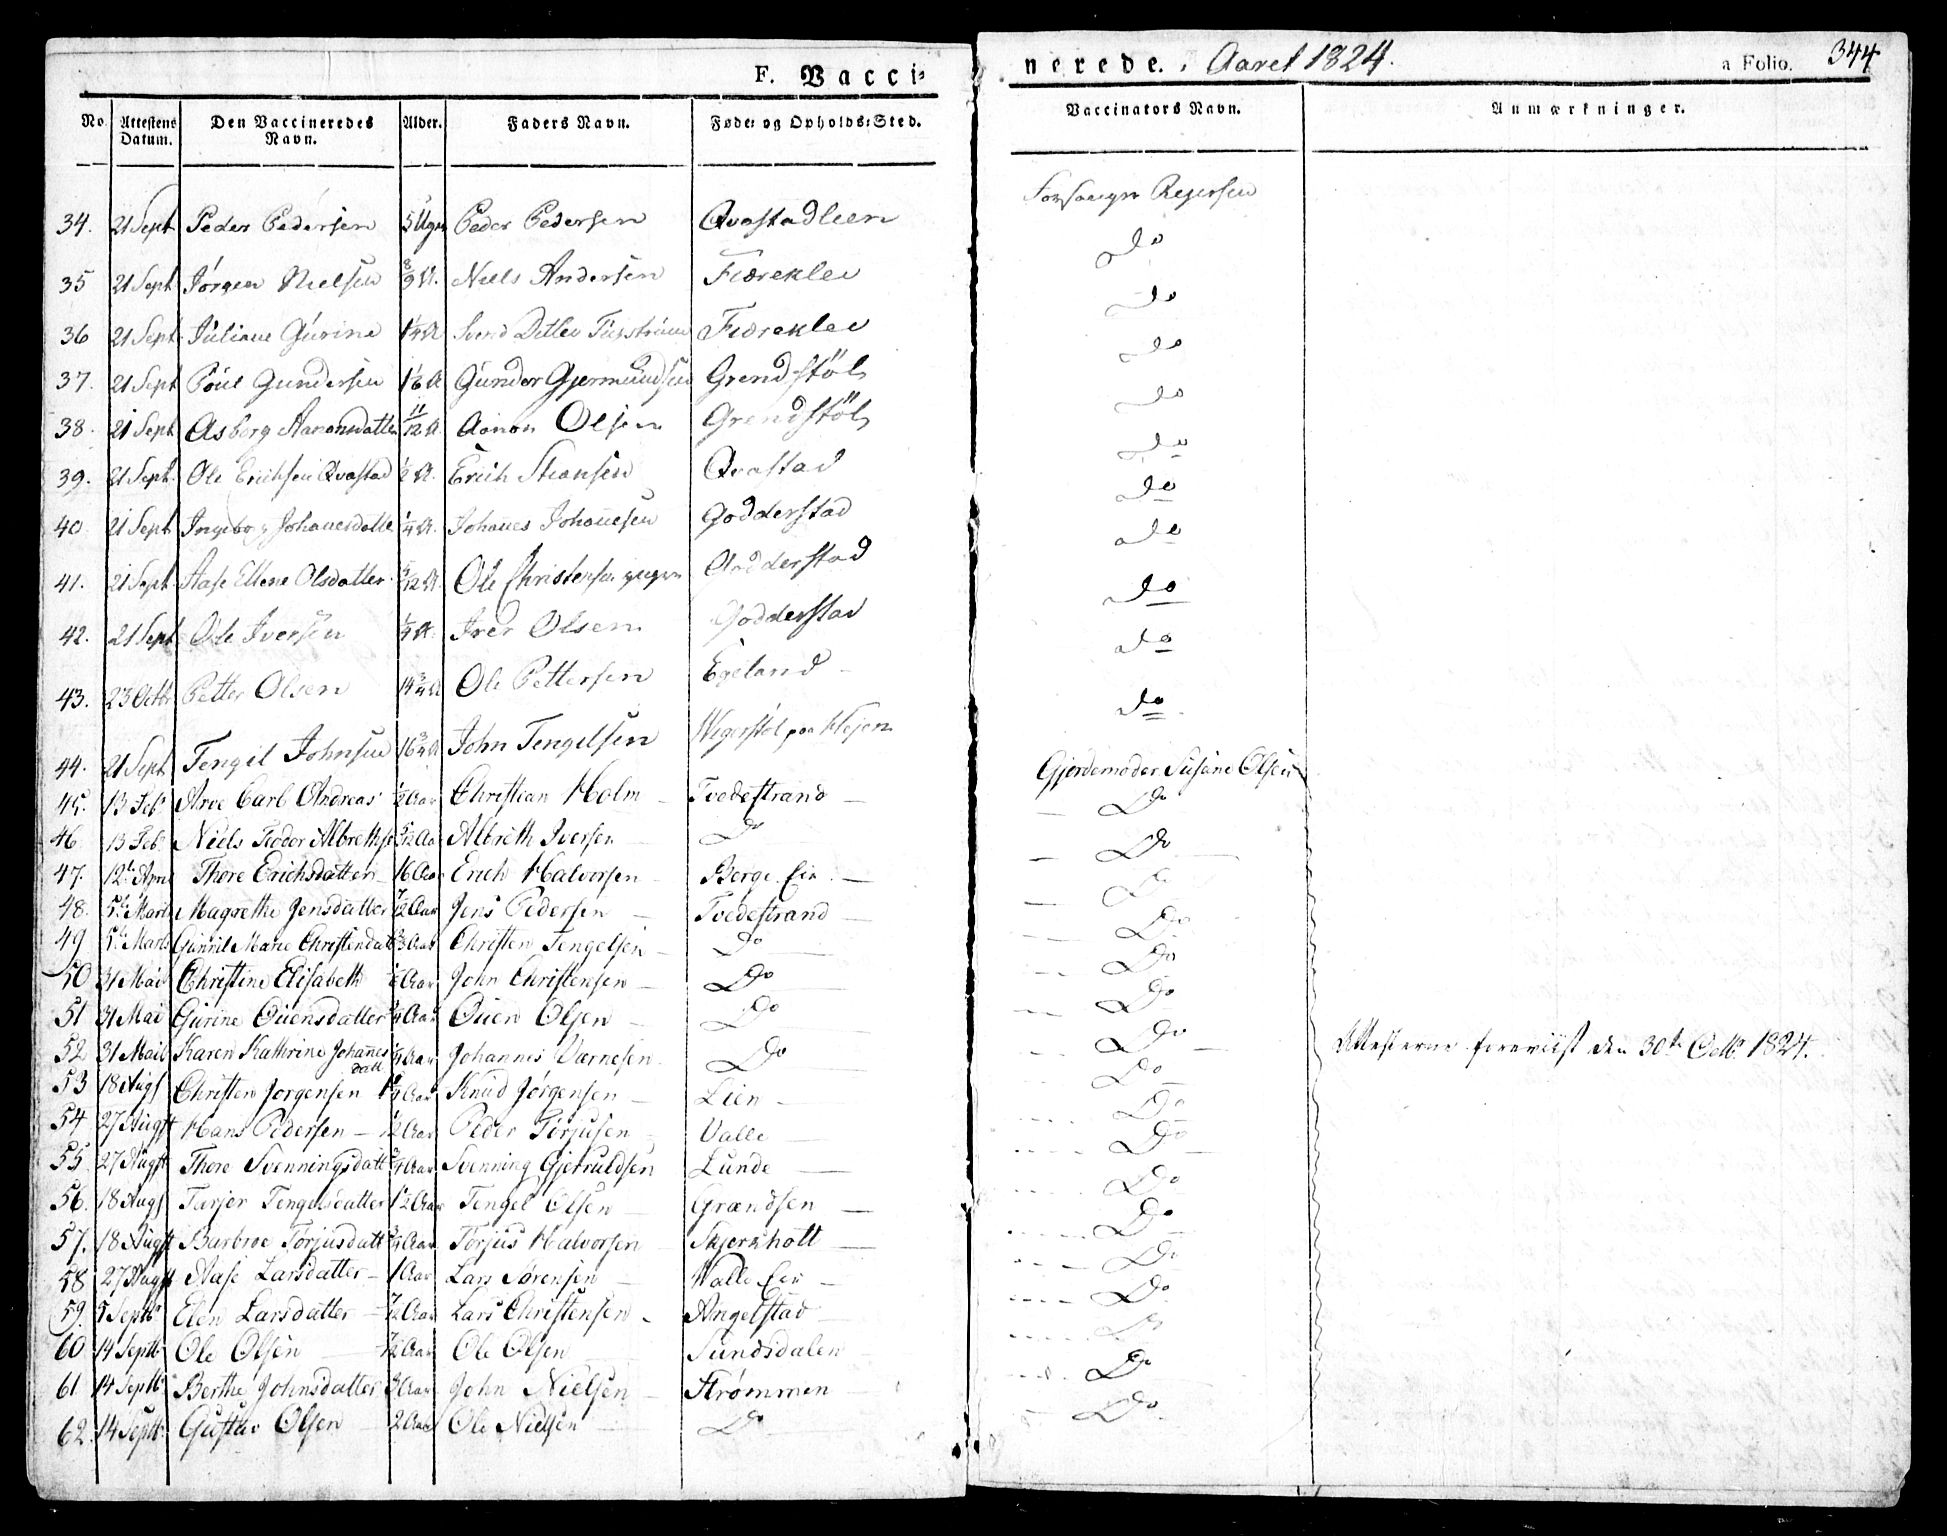 F. Vacci-
nerede. i Aaret 1824.
a Folio. 344
No. Attestens Datum. Den Vaccineredes Navn. Alder. Faders Navn. Føde- og Opholds-Sted. Vaccinators Navn. Anmærkninger.
34. 21 Sept Peder Pedersen 5 Uger Peder Pedersen Qvastadleen Repersen
35 21 Sept Jørgen Nielsen 8/9 A. Niels Andersen Fiæreklev do
36 21 Sept Juliane Gurine 1 1/4 A Svend Detlev Fiæreklev do
37. 21 Sept Poul Gundersen 1 1/6 A Gunder Gjermundsen Grendstöl do
38. 21 Sept Asborg Aanonsdatter 11/12 A Aanon Olsen Grendstöl do
39. 21 Sept. Ole Erichsen Qvastad 1/2 A. Erich Qvastad do
40. 21 Sept Ingeborg Johanesdatte 1/4 A. Johanes Johanesen Godderstad do
41. 21 Sept Aase Ellene Olsdatter /12 A. Ole Christensen Godderstad do
42. 21 Sept Ole Iversen A. Iver Olsen Godderstad do
43. 23 Octbr Petter Olsen 14 3/4 A Ole Pettersen Egeland do
44. 21 Sept Tengil Johnsen 16 3/4 A John Tengelsen Wegerstøl paa Hejen do
45. 13 Feb. Arve Carl Andreas 1/2 Aar Christian Holm Tvedestrand Gjordemoder Susane Olsen
46 13 Feb. Niels Teodor Albrethse 5/12 Aar Albreth Iversen Do Do
47. 12te April Thore Erichsdatter 16 Aar Erich Halvorsen Berge Eie Do
48. 5te Marts Magrethe Jensdatter 1/2 Aar Jens Pedersen Tvedestrand Do
49 5te Marts Gunnil Marie Christendat 2/3 Aar Christen Tengelsen Do Do
50 31 Mai Christine Elisabeth Aar John Christensen Do Do
51 31 Mai Gurine Ouensdatter Aar Ouen Olsen Do Do
52 31 Maii Karen Kathrine Johannes datt Aar Johannes Værnesen Do Do Attesterne foreviist den 30te Octbr 1824.
53 18 Augs Christen Jorgensen Aar Knud Jørgensen Lien Do
54 27 Augst Hans Pedersen 1/2 Aar Peder Torjusen Valle Do
55. 27 Augst Thore Svenningsdatt Aar Svenning Gjetruldsen Lunde Do
56. 18 Augs Tarjer Tengelsdatter 1 1/2 Aar Tengel Olsen Grændsen Do
57. 18 Augst Barbroe Torjusdatt 3/4 Aar Torjus Halvorsen Skjerkholt Do
58 27 Augst Aase Larsdatter 1 Aar Lars Sørensen Walle Eie Do
59. 5 Septb. Elen Larsdatter Aar Lars Christensen Angelstad Do
60. 14 Septb. Ole Olsen Aar Ole Olsen Sundsdalen Do
61 14 Septb. Berthe Johnsdatter 3 Aar John Nielsen Strømmen Do
62. 14 Septb. Gustav Olsen 2 Aar Ole Nielsen Do Do